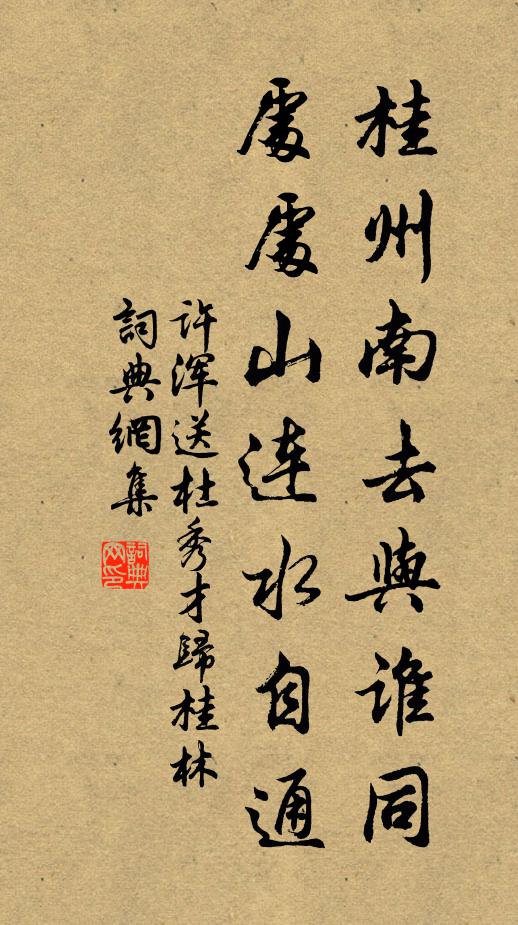 桂州南去與誰同
處處山連水自通
许渾送杜秀才歸桂林
詞典網集
詞典網印